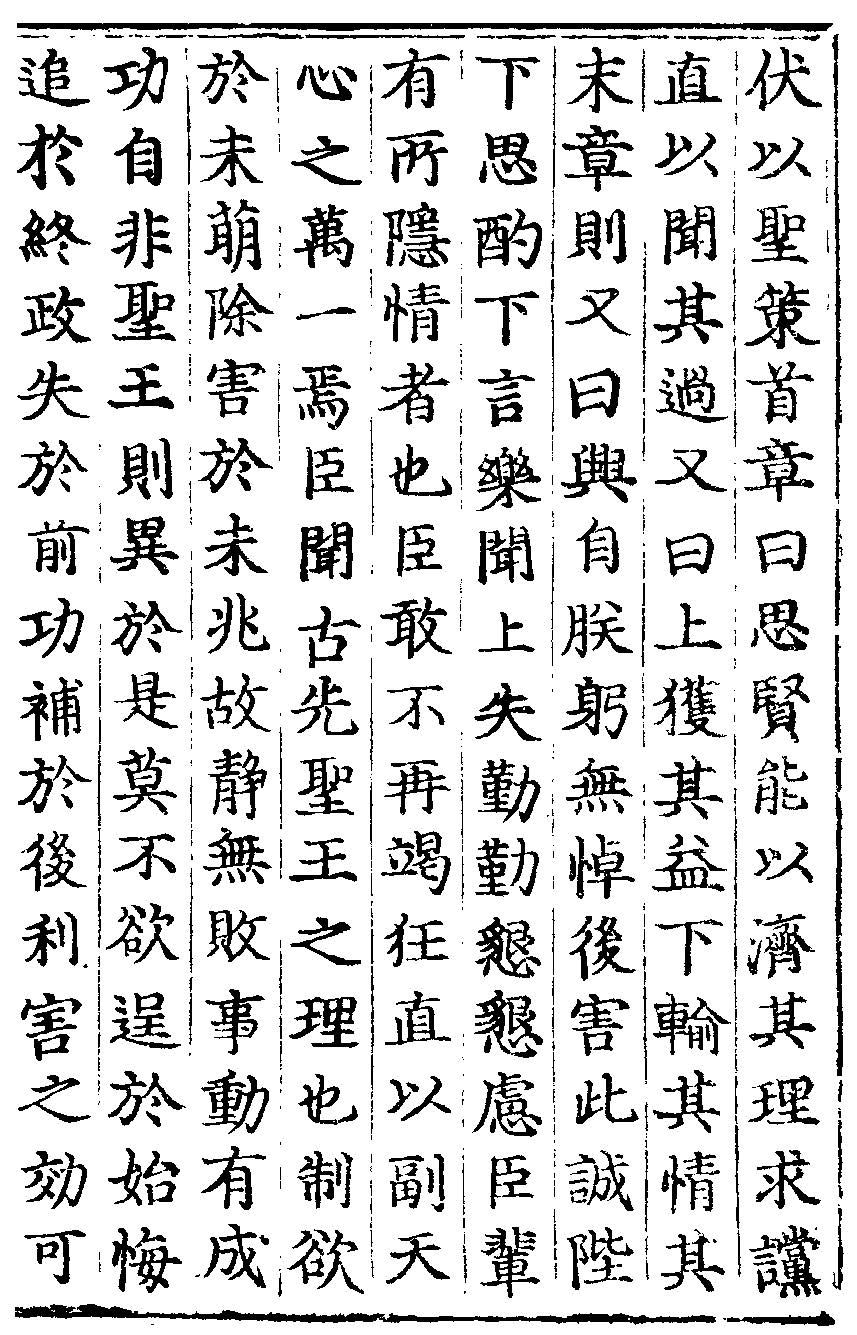 伏以聖策首章曰思賢能以濟其理求讜
直以聞其過又曰上獲其益下輸其情其
末章則又曰興自朕躬無悼後害此誠陛
下思酌下言樂聞上失勤勤懇懇慮臣輩
有所隱情者也臣敢不再竭狂直以副天
心之萬一焉臣聞古先聖王之理也制欲
於未萌除害於未兆故静無敗事動有成
功自非聖王則異於是莫不欲逞於始悔
追於終政失於前功補於後利害之効可